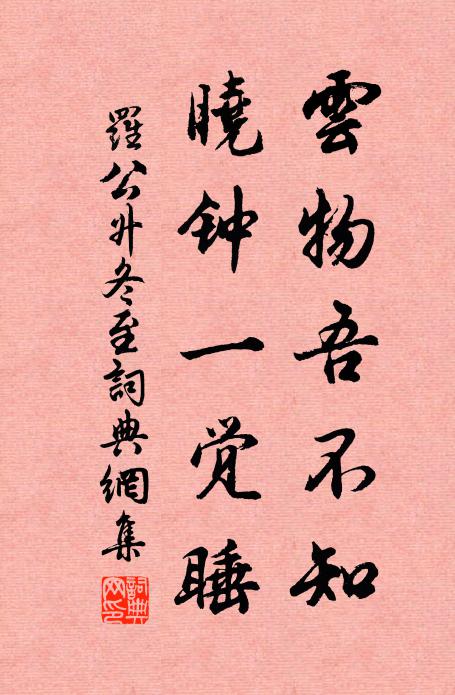 雲物吾不知
曉钟一觉睡
羅公升冬至詞典網集
詞典网印